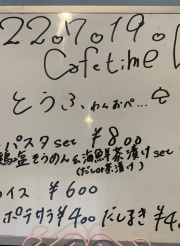 22.7.19.
Cafetime
とうふ わんおぺ…
パスタset ¥800
鶏塩そうめん&海鮮茶漬けset
(だしの茶漬け)
イス ¥600
ポテサラ¥400 だしまき¥4